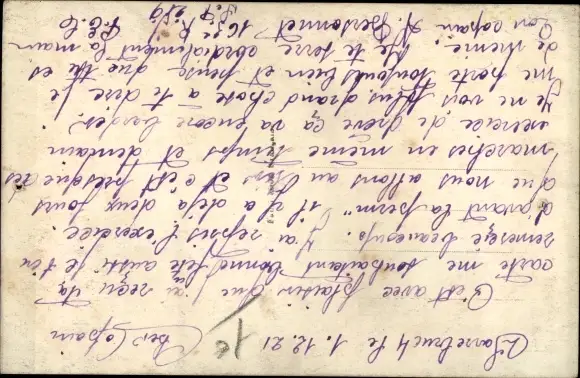 Sarrebruck le 1.12.21
Cher Copain
C'est avec plaisir que j'ai reçu ta
carte me souhaitant bonne fête aussi je t'en
remersie beaucoup. J'ai repris l'exercice
d'avant la perm" il y a déjà deux jours
que nous allons au et c'est presque des
marches en même temps et demain
exercice de grève ça va encore barder.
Je ne vois plus grand chose a te dire je
me porte toujours bien et pense que tu es
de même. Je te serre cordialement la main
Ton copain H. Personnet
16e